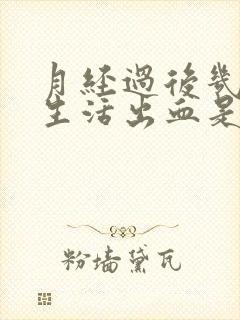 月經過後幾
生活出血是
粉墻黛瓦